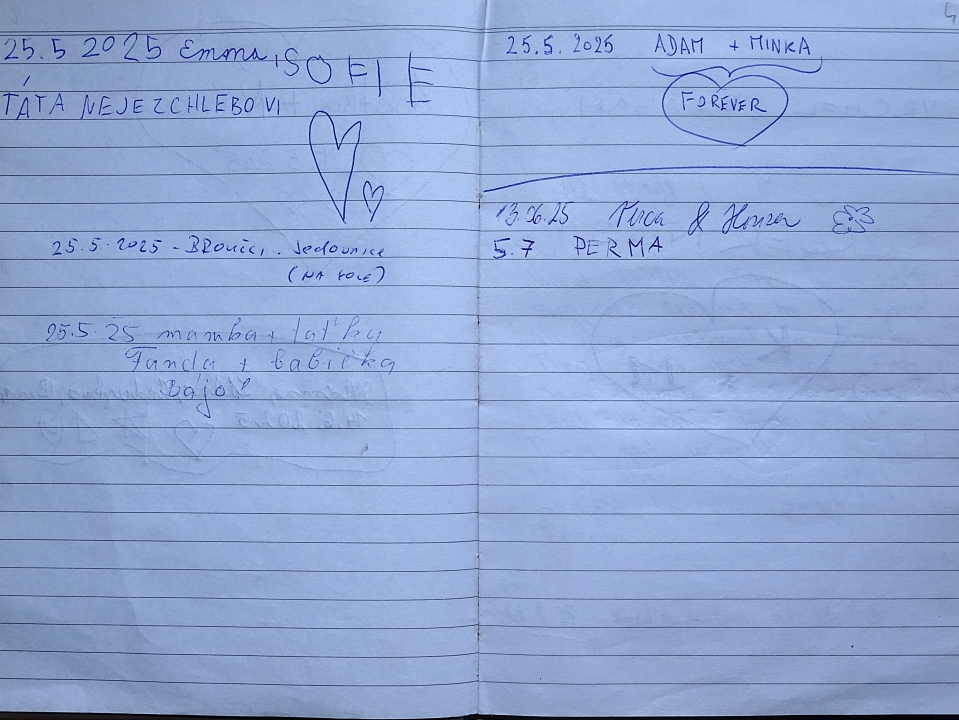 25.5 2025 Emma, SOFIE
TÁTA NEJEZCHLEBOVI
25.5.2025 - BROUČCI, Jedovnice
(NA KOLE)
25.5. 25 mamba + taťka
Fanda + babička
Bájo
25.5. 2025 ADAM + MINKA
FOREVER
13.06.25 & Honza
5.7 PERMA